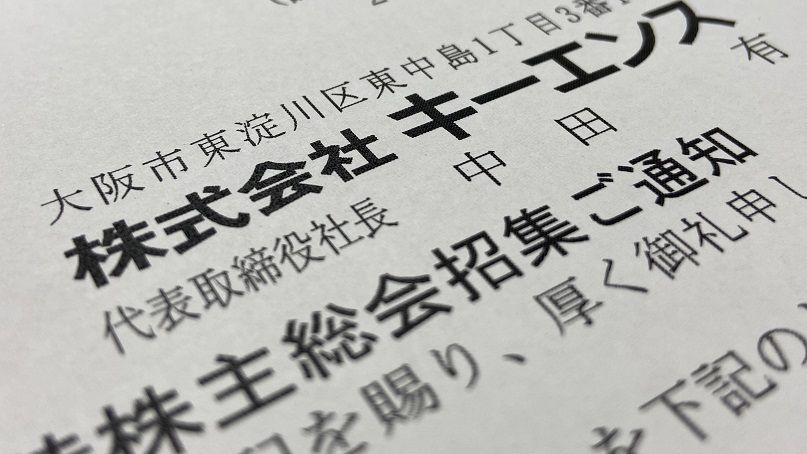 大阪市東淀川区東中島1丁目3番1
株式会社 キーエンス
代表取締役社長 中田 有
株主総会招集ご通知
を賜り、厚く御礼申し
を下記の